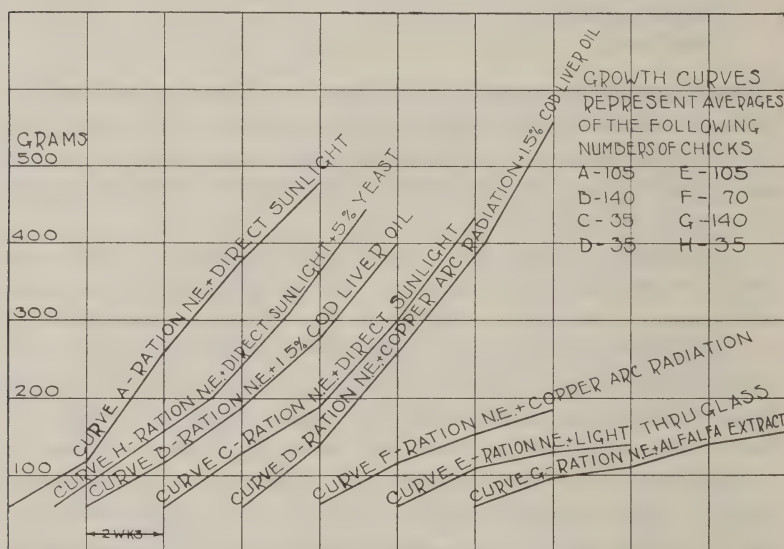 GROWTH CURVES
REPRESENT AVERAGES
OF THE FOLLOWING
NUMBERS OF CHICKS
A-105 E-105
B-140 F-70
C-35 G-140
D-35 H-35
GRAMS
500
400
300
200
100
2 WKS
CURVE A-RATION N.E.+DIRECT SUNLIGHT
CURVE H-RATION N.E.+DIRECT SUNLIGHT+5% YEAST
CURVE B-RATION N.E.+1.5% COD LIVER OIL
CURVE C-RATION N.E.+DIRECT SUNLIGHT
CURVE D-RATION N.E.+COPPER ARC RADIATION+1.5% COD LIVER OIL
CURVE F-RATION N.E.+COPPER ARC RADIATION
CURVE E-RATION N.E.+LIGHT THRU GLASS
CURVE G-RATION N.E.+ALFALFA EXTRACT